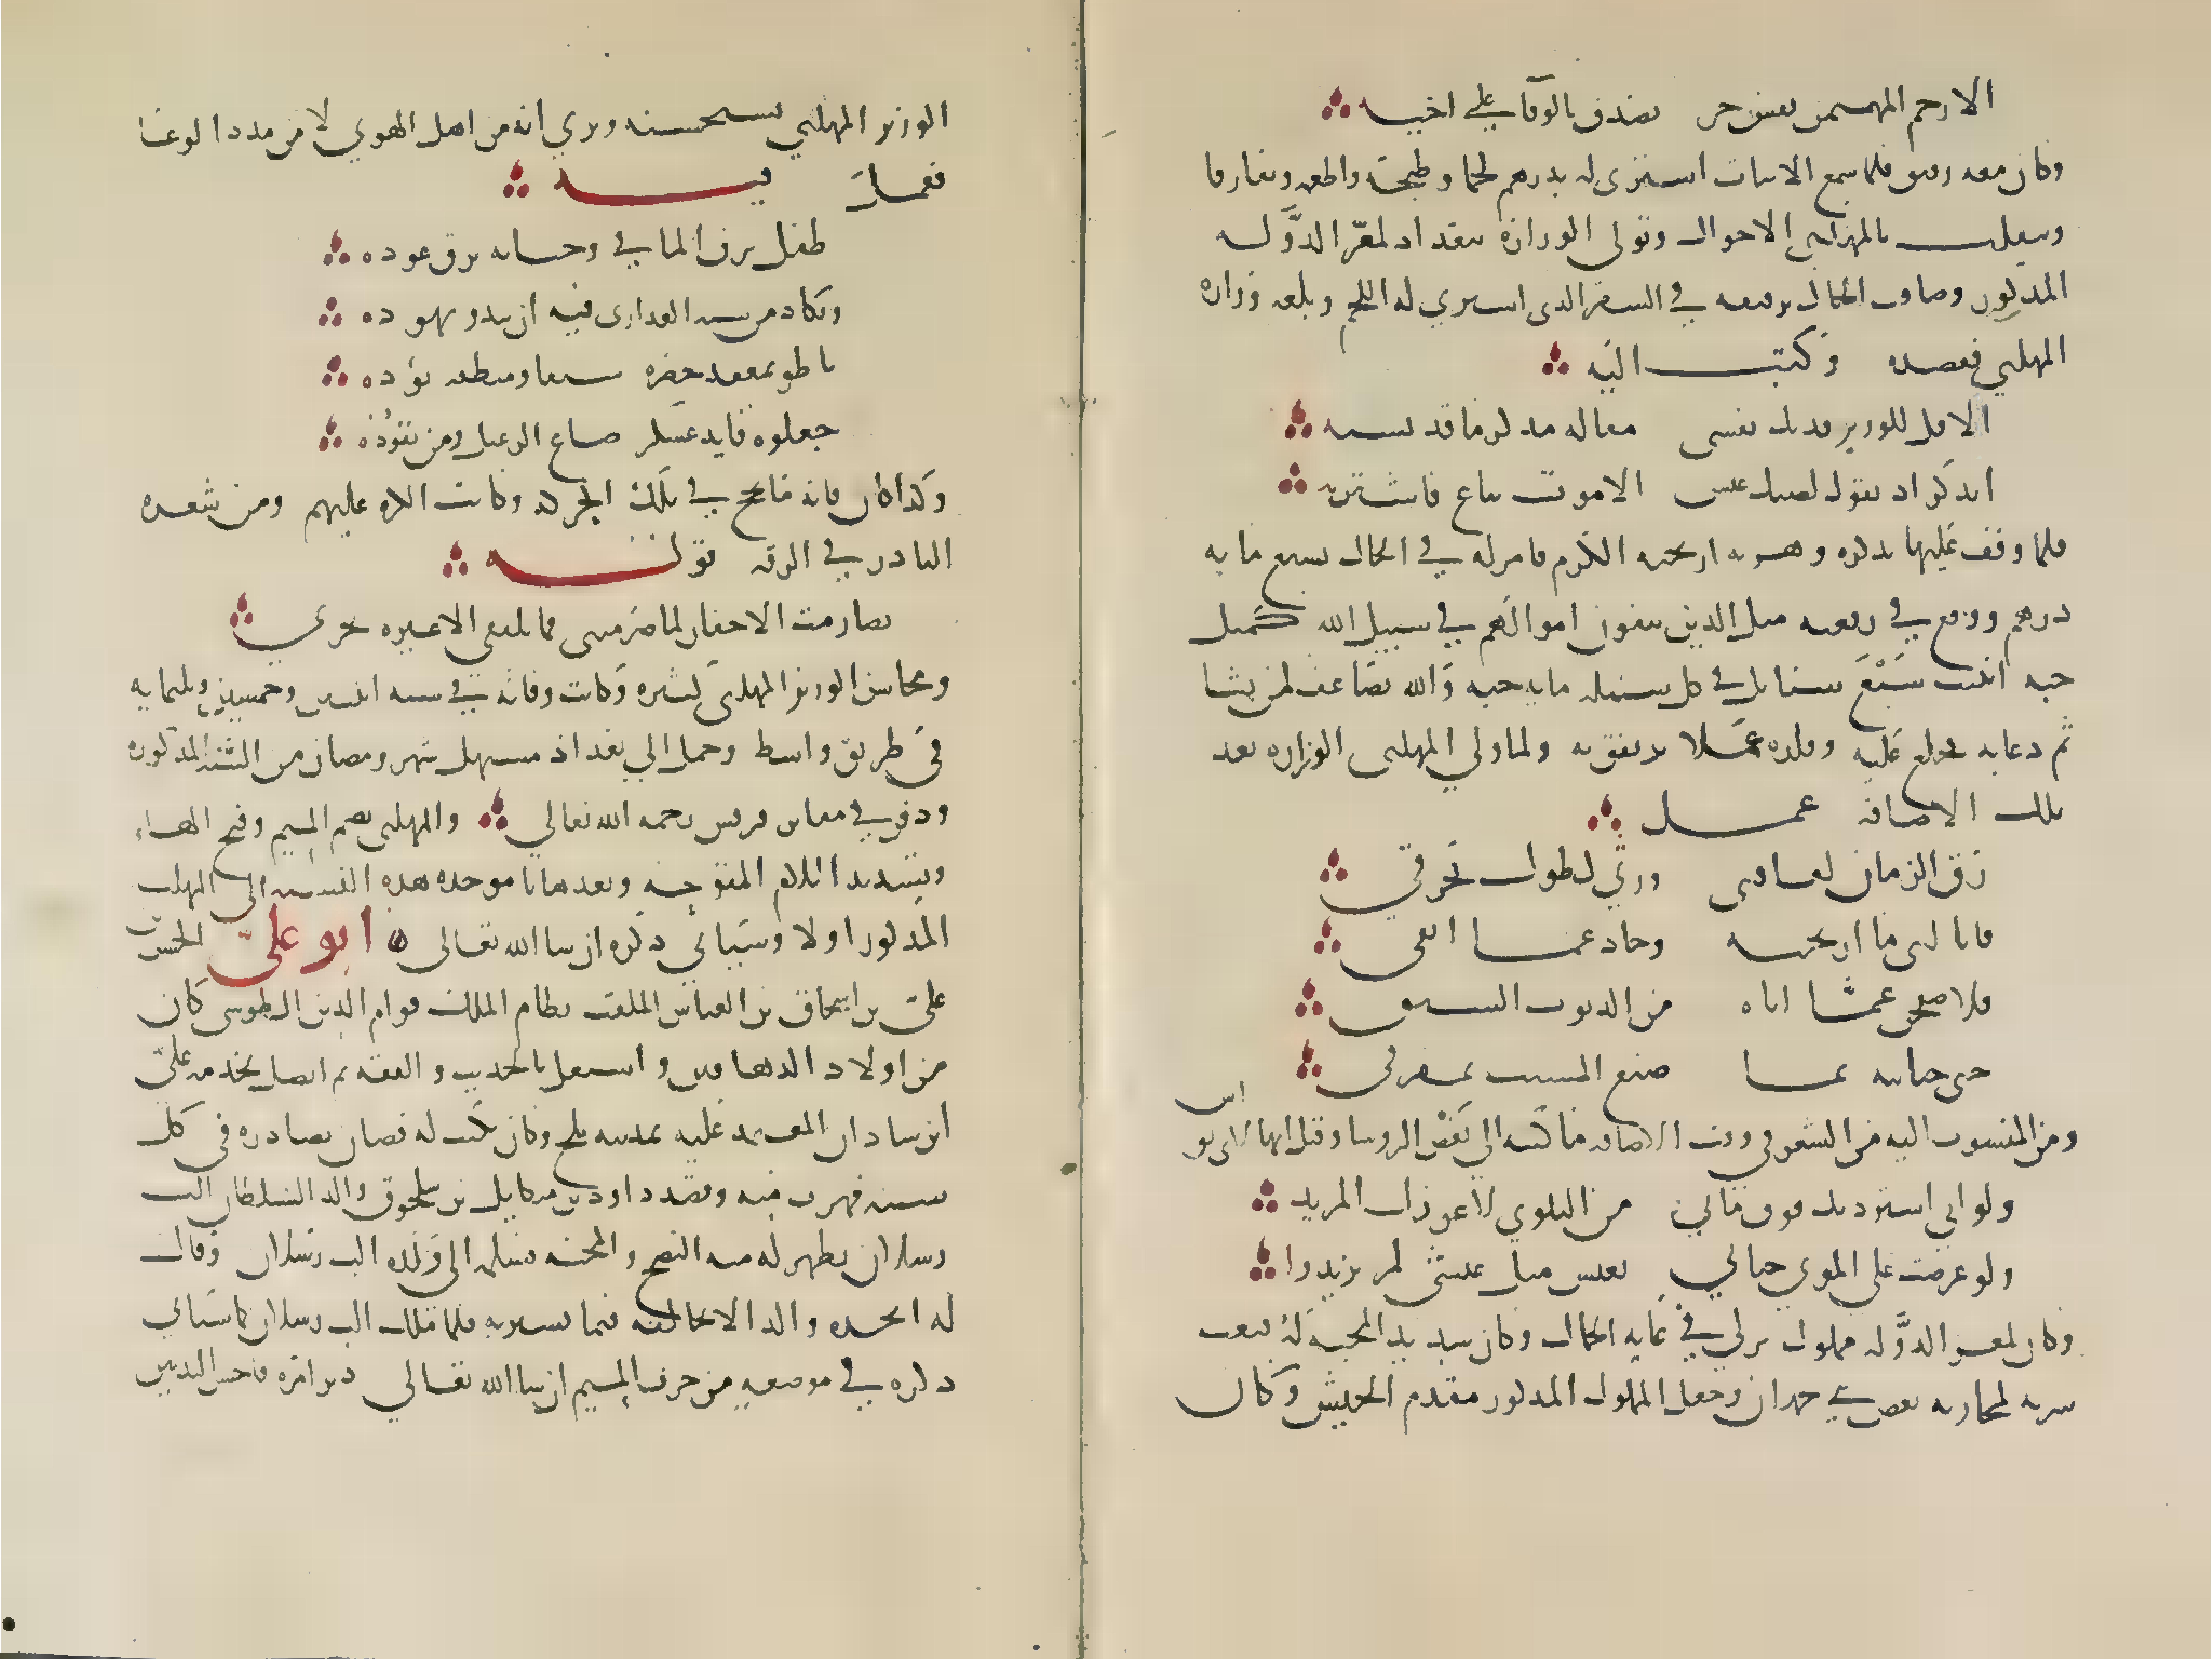 الا رحم المهيمن نفس حر تصدق بالوفاة على اخيه
وكان معه رفيق فلما سمع الابيات اشترى له بدرهم لحما وطبخه واطعمه وتفارقا
وتنقلت بالمهلبي الاحوال وتولى الوزارة ببغداد لمعز الدولة
المذكور وضاقت الحال برفيقه في السفر الذي اشترى له اللحم وبلغه وزارة
المهلبي فقصده وكتب اليه
الا قل للوزير فدتك نفسي مقالة مذكر ما قد نسيه
اتذكر اذ تقول لضنك عيش الا موت يباع فاشتريه
فلما وقف عليها تذكره وهزته اريحية الكرم فامر له في الحال بسبع ماية
درهم ووقع في رقعته مثل الذين ينفقون اموالهم في سبيل الله كمثل
حبه انبتت سبع سنابل في كل سنبله مايه حبه والله يضاعف لمن يشا
ثم دعا به فخلع عليه وقلده عملا يرتفق به ولما ولي المهلبي الوزاره بعد
تلك الاضاقه عمل
رق الزمان لفاقتي ورثى لطول تحرقي
فانالني ما ارتجيه وحاد عما اتقي
فلاصفحن عما اتاه من الذنوب السبق
حتى جنايته بما صنع المشيب بمفرقي
ومن المنسوب اليه من الشعر في وقت الاضاقه ما كتبه الى بعض الروسا وقيل انها لابي نواس
ولو اني استزدتك فوق ما بي من البلوى لاعوزك المزيد
ولو عرضت على الموتى حياتي بعيش مثل عيشي لم يريدوا
وكان لمعز الدوله مملوك تركي في غايه الجمال وكان شديد المحبه له فبعث
سريه لمحاربه بعض بني حمدان وجعل المملوك المذكور مقدم الجيش وكان
الوزير المهلبي يستحسنه ويرى انه من اهل الهوى لا من مدد الوغا
فقال فيه
طفل يرق الما في وجناته ويرق عوده
ويكاد من شبه العذارى فيه ان تبدو نهوده
ناطوا بمعقد خصره سيفا ومنطقه توده
جعلوه قايد عسكر ضاع الرعيل ومن يقوده
وكذا كان فانه ما نجح في تلك الحركه وكانت الكره عليهم ومن شعره
النادر في الرقه قوله
تصارمت الاجفان لما صرمتني فما تلتقي الا على عبره تجري
ومحاسن الوزير المهلبي كثيره وكانت وفاته في سنه اثنتين وخمسين وثلثمايه
في طريق واسط وحمل الى بغداد مستهل شهر رمضان من السنه المذكوره
ودفن في مقابر قريش رحمه الله تعالى والمهلبي بضم الميم وفتح الهاء
وتشديد اللام المفتوحه وبعدها با موحده هذه النسبه الى المهلب
المذكور اولا وسياتي ذكره ان شا الله تعالى ابو علي الحسن بن
علي بن اسحاق بن العباس الملقب نظام الملك قوام الدين الطوسي كان
من اولاد الدهاقين واشتغل بالحديث والفقه ثم اتصل بخدمه علي
ابن شاذان المعتمد عليه بمدينه بلخ وكان يكتب له فصار يصادره في كل
سنه فهرب منه وقصد داود بن ميكاييل بن سلجوق والد السلطان الب
رسلان فظهر له منه النصح والمحبه فسلمه الى ولده الب رسلان وقال
له اتخذه والدا لا تخالفه فيما يشير به فلما ملك الب رسلان كما سياتي
ذكره في موضعه من حرف الميم ان شا الله تعالى دبر امره فاحسن التدبير